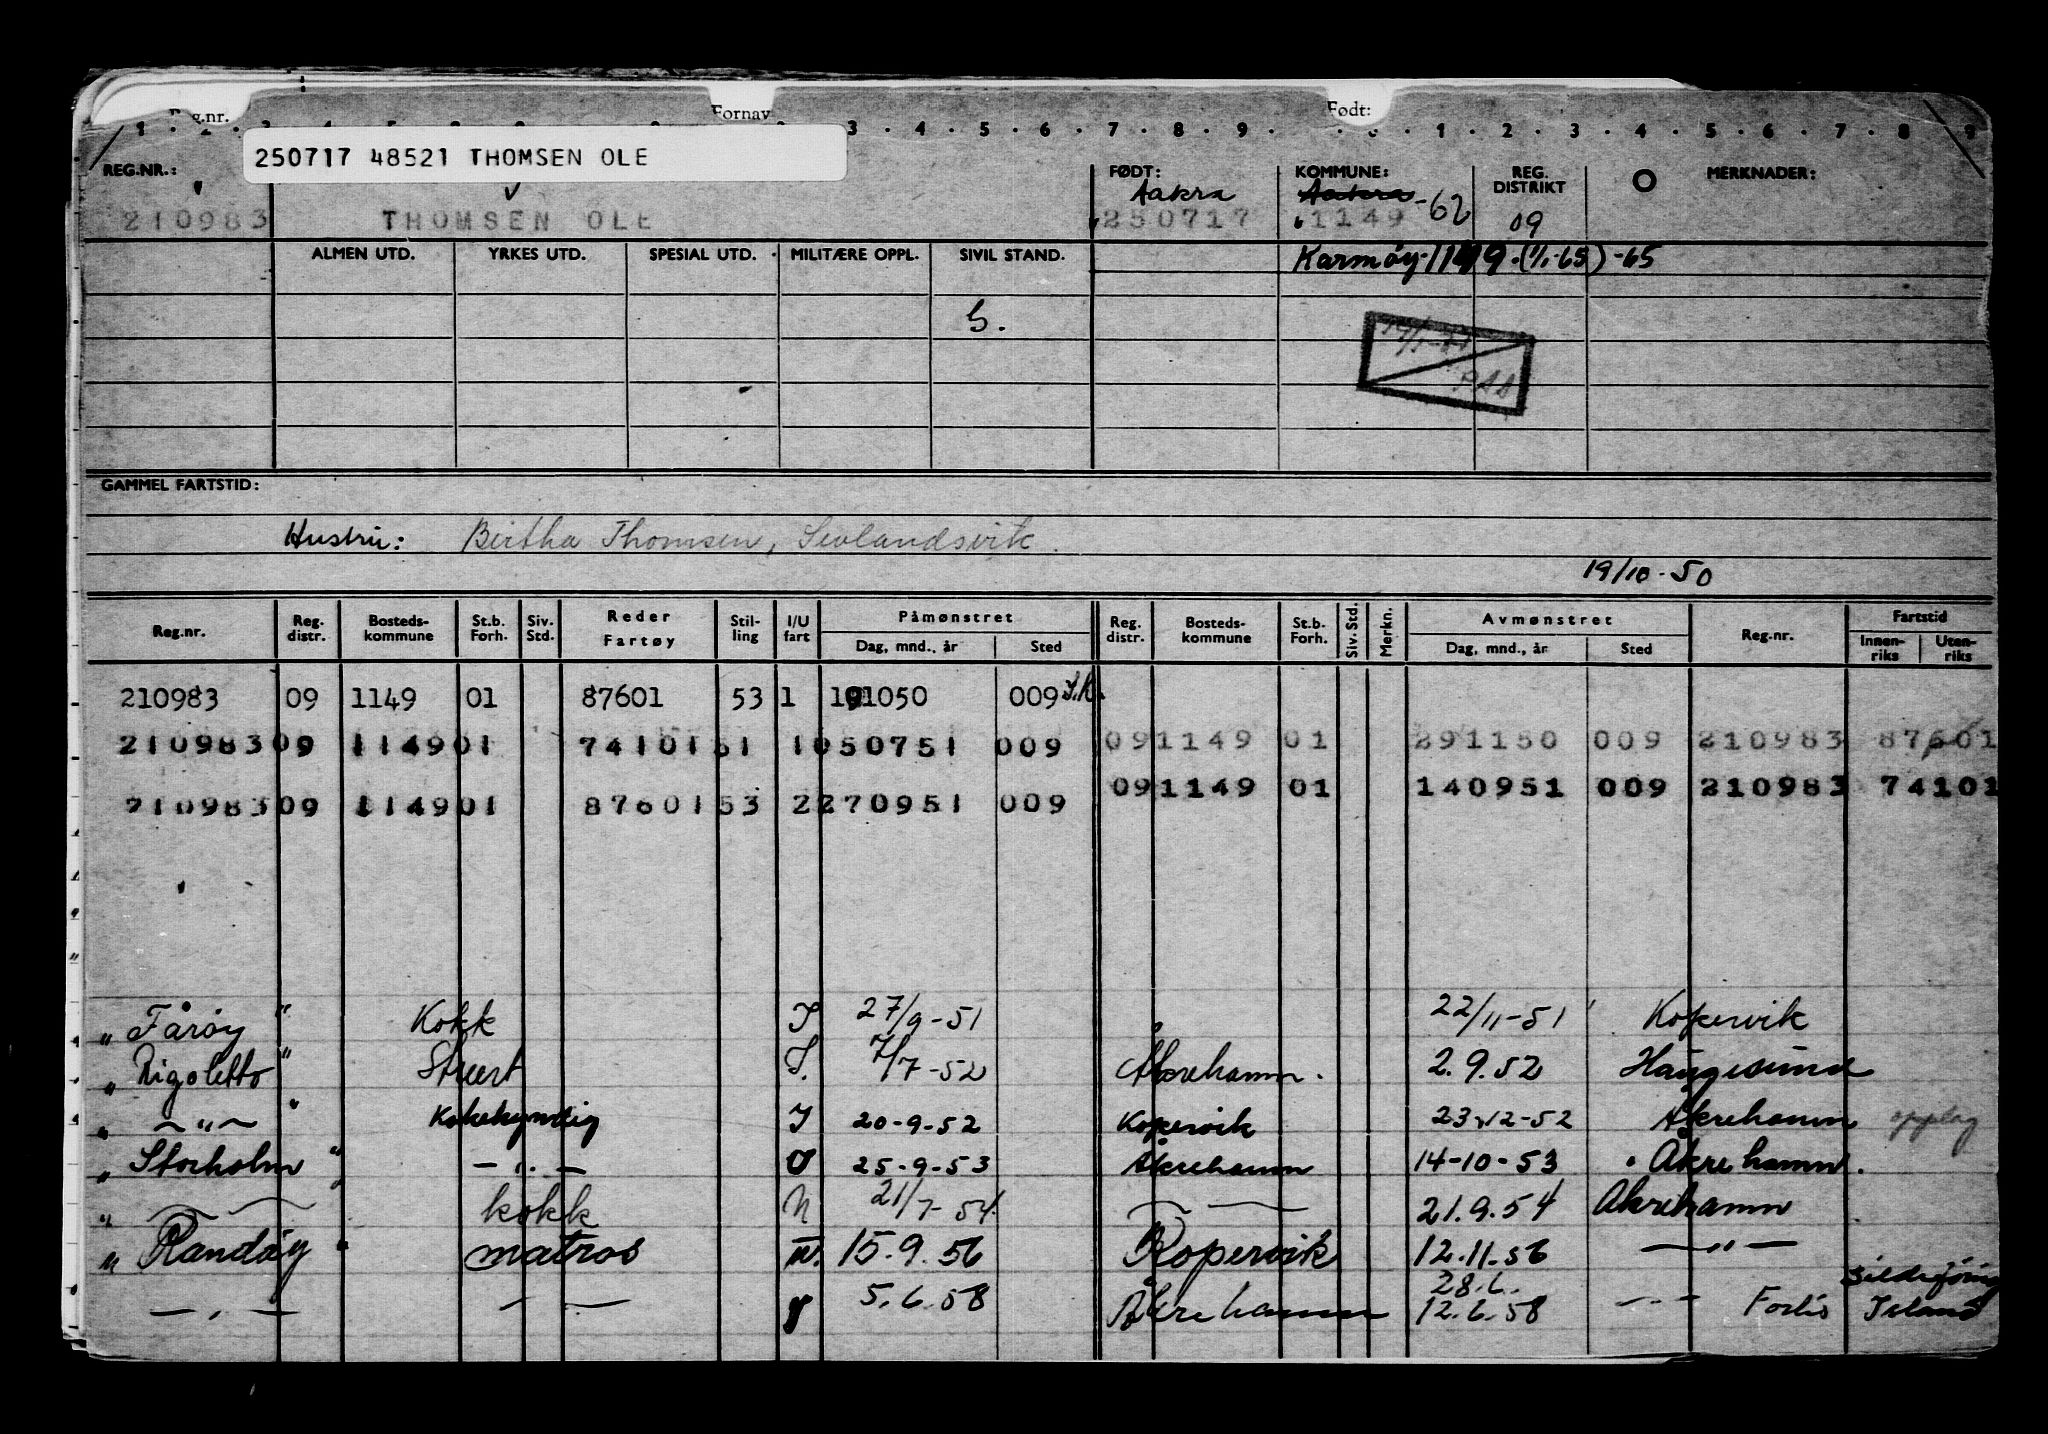 g.nr. Fornav Født:
3 4 5 6 7 8 9 1 2 3 4 5 6 7 8 9
250717 48521 THOMSEN OLE
REG.NR.: FØDT: KOMMUNE: REG. DISTRIKT O MERKNADER:
Aakra Aakra -62
210983 THOMSEN OLE 250717 1149 09
ALMEN UTD. YRKES UTD. SPESIAL UTD. MILITÆRE OPPL. SIVIL STAND. Karmøy-1149.(1/1-65)-65
G.
GAMMEL FARTSTID:
Hustru: Birtha Thomsen, Sevlandsvik.
19/10-50
Reg.nr. Reg. distr. Bosteds-kommune St.b. Forh. Siv. Std. Reder Fartøy Stil-ling I/U fart Påmønstret Dag, mnd., år Sted Reg. distr. Bosteds-kommune St.b. Forh. Siv. Std. Merkn. Avmønstret Dag, mnd., år Sted Reg.nr. Fartstid Innen-riks Uten-riks
210983 09 1149 01 87601 53 1 191050 009
210983 09 1149 01 74101 51 1 050751 009 09 1149 01 291150 009 210983 87601
09 1149 01 140951 009 210983 74101
210983 09 1149 01 87601 53 2 270951 009
" Fårøy " Kokk I 27/9-51 22/11-51 Kopervik
" Rigoletto " Stuert I. 7/7-52 Åkrehamn. 2.9.52 Haugesund
" —"— " Kokekyndig I 20-9-52 Kopervik 23-12-52 Åkrehamn opplag
" Storholm " —"— 25-9-53 Åkrehamn 14-10-53 Åkrehamn.
" kokk 21/7-54 21.9.54 Åkrehamn
" Randøy " matros 15.9.56 Kopervik 12.11.56 —"—
—"— 5.6.58 Åkrehamn 28.6. 12.6.58 —"— Sildeføring Island